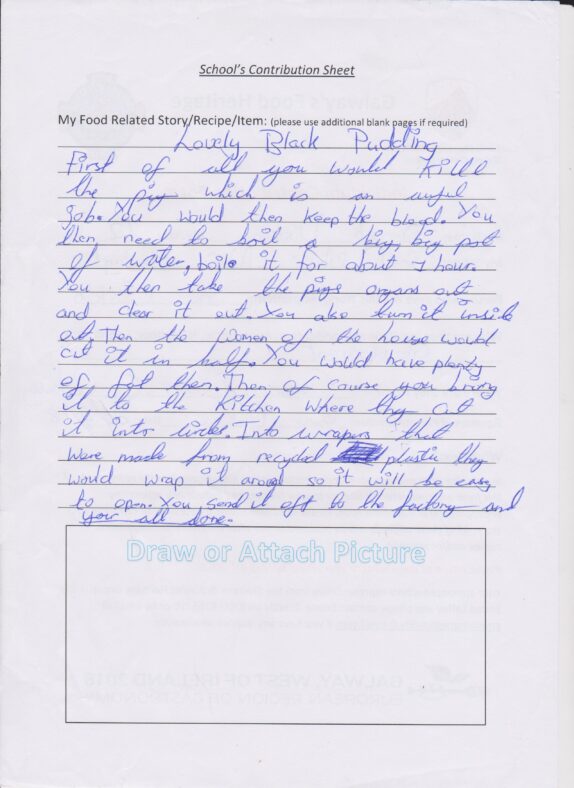 School's Contribution Sheet
My Food Related Story/Recipe/Item: (please use additional blank pages if required)
Lovely Black Pudding
First of all you would kill
the pig which is an awful
job. You would then keep the blood. You
then need to boil a big, big pot
of water, boile it for about 1 hour.
You then take the pigs organs out
and clear it out. You also turn it inside
out. Then the women of the house would
cut it in half. You would have plenty
of fat then. Then of course you bring
it to the kitchen where they cut
it into . Into wrapers that
were made from recycled plastic they
would wrap it around so it will be easy
to open. You send it off to the factory and
your all done.
Draw or Attach Picture
GALWAY, WEST OF IRELAND 2018
EUROPEAN REGION OF GASTRONOMY